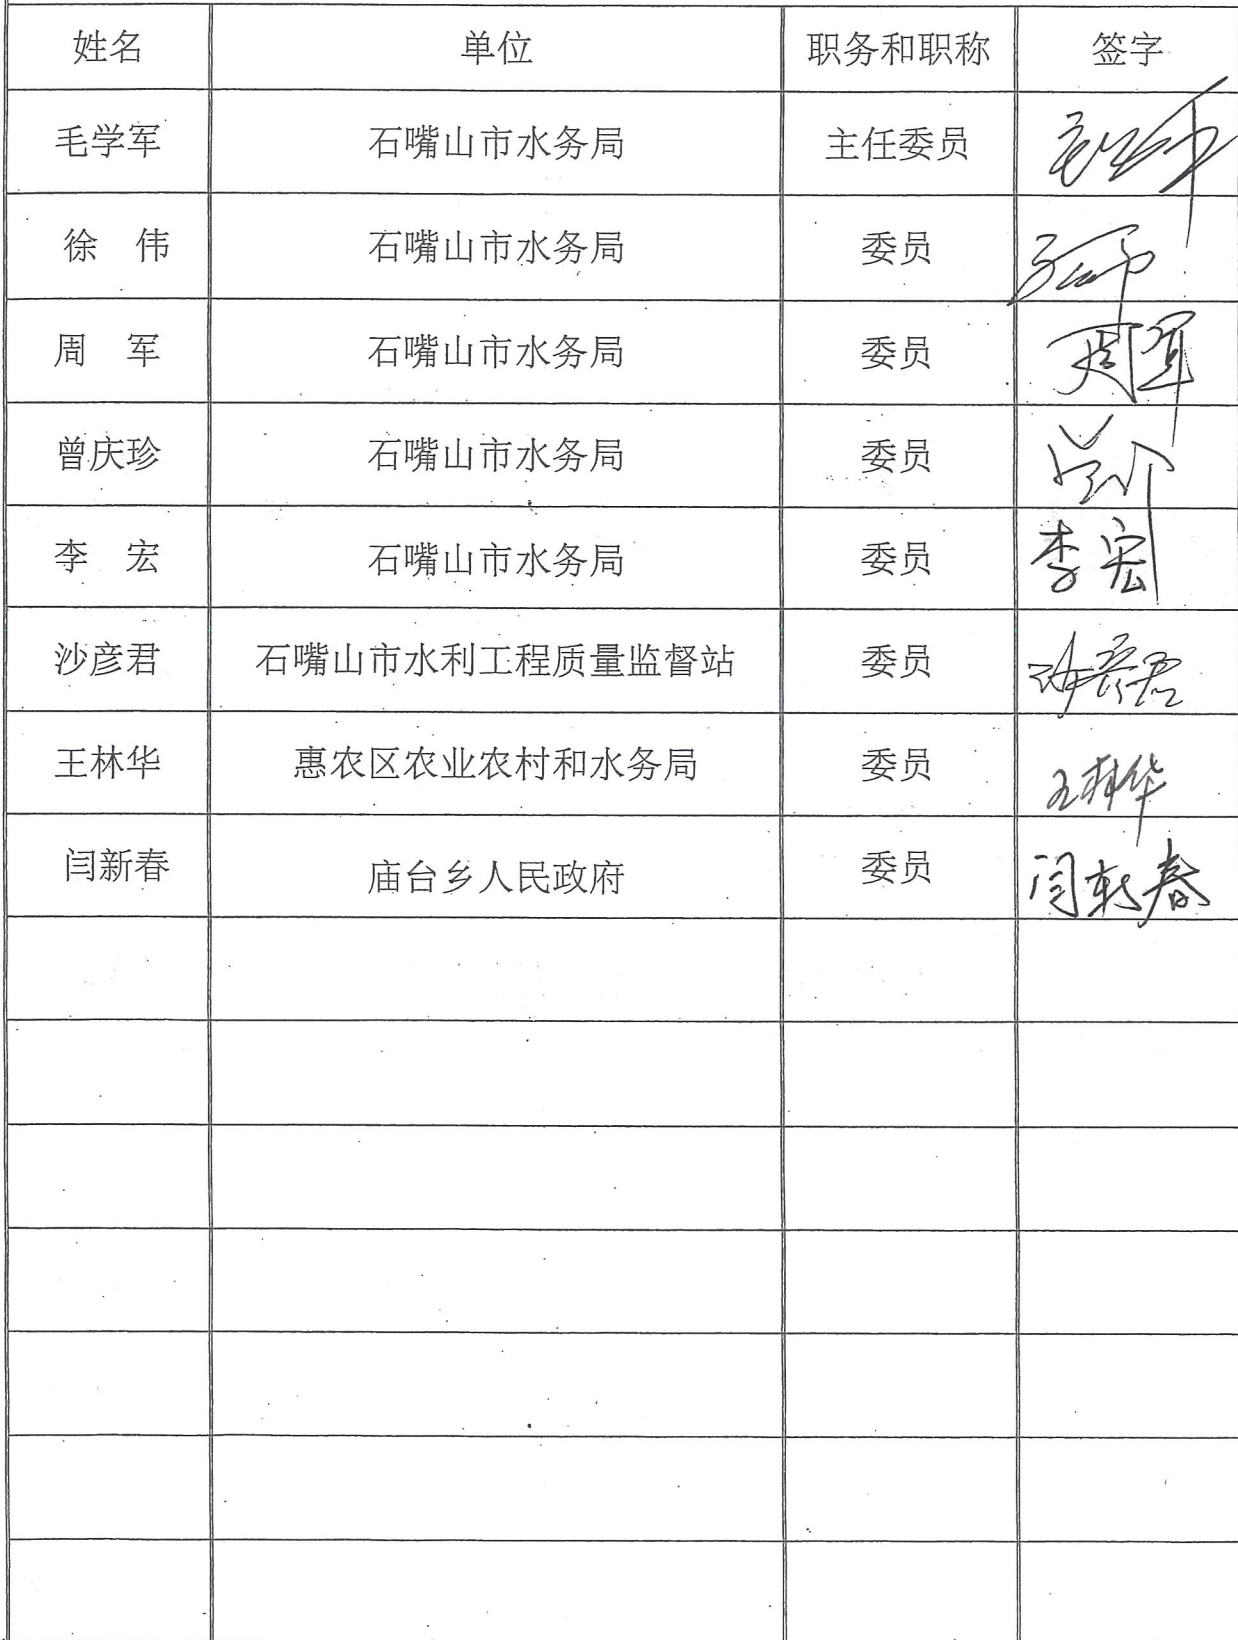 姓名 单位 职务和职称 签字
毛学军 石嘴山市水务局 主任委员
徐 伟 石嘴山市水务局 委员
周 军 石嘴山市水务局 委员 周军
曾庆珍 石嘴山市水务局 委员
李 宏 石嘴山市水务局 委员 李宏
沙彦君 石嘴山市水利工程质量监督站 委员 沙彦君
王林华 惠农区农业农村和水务局 委员 王林华
闫新春 庙台乡人民政府 委员 闫新春